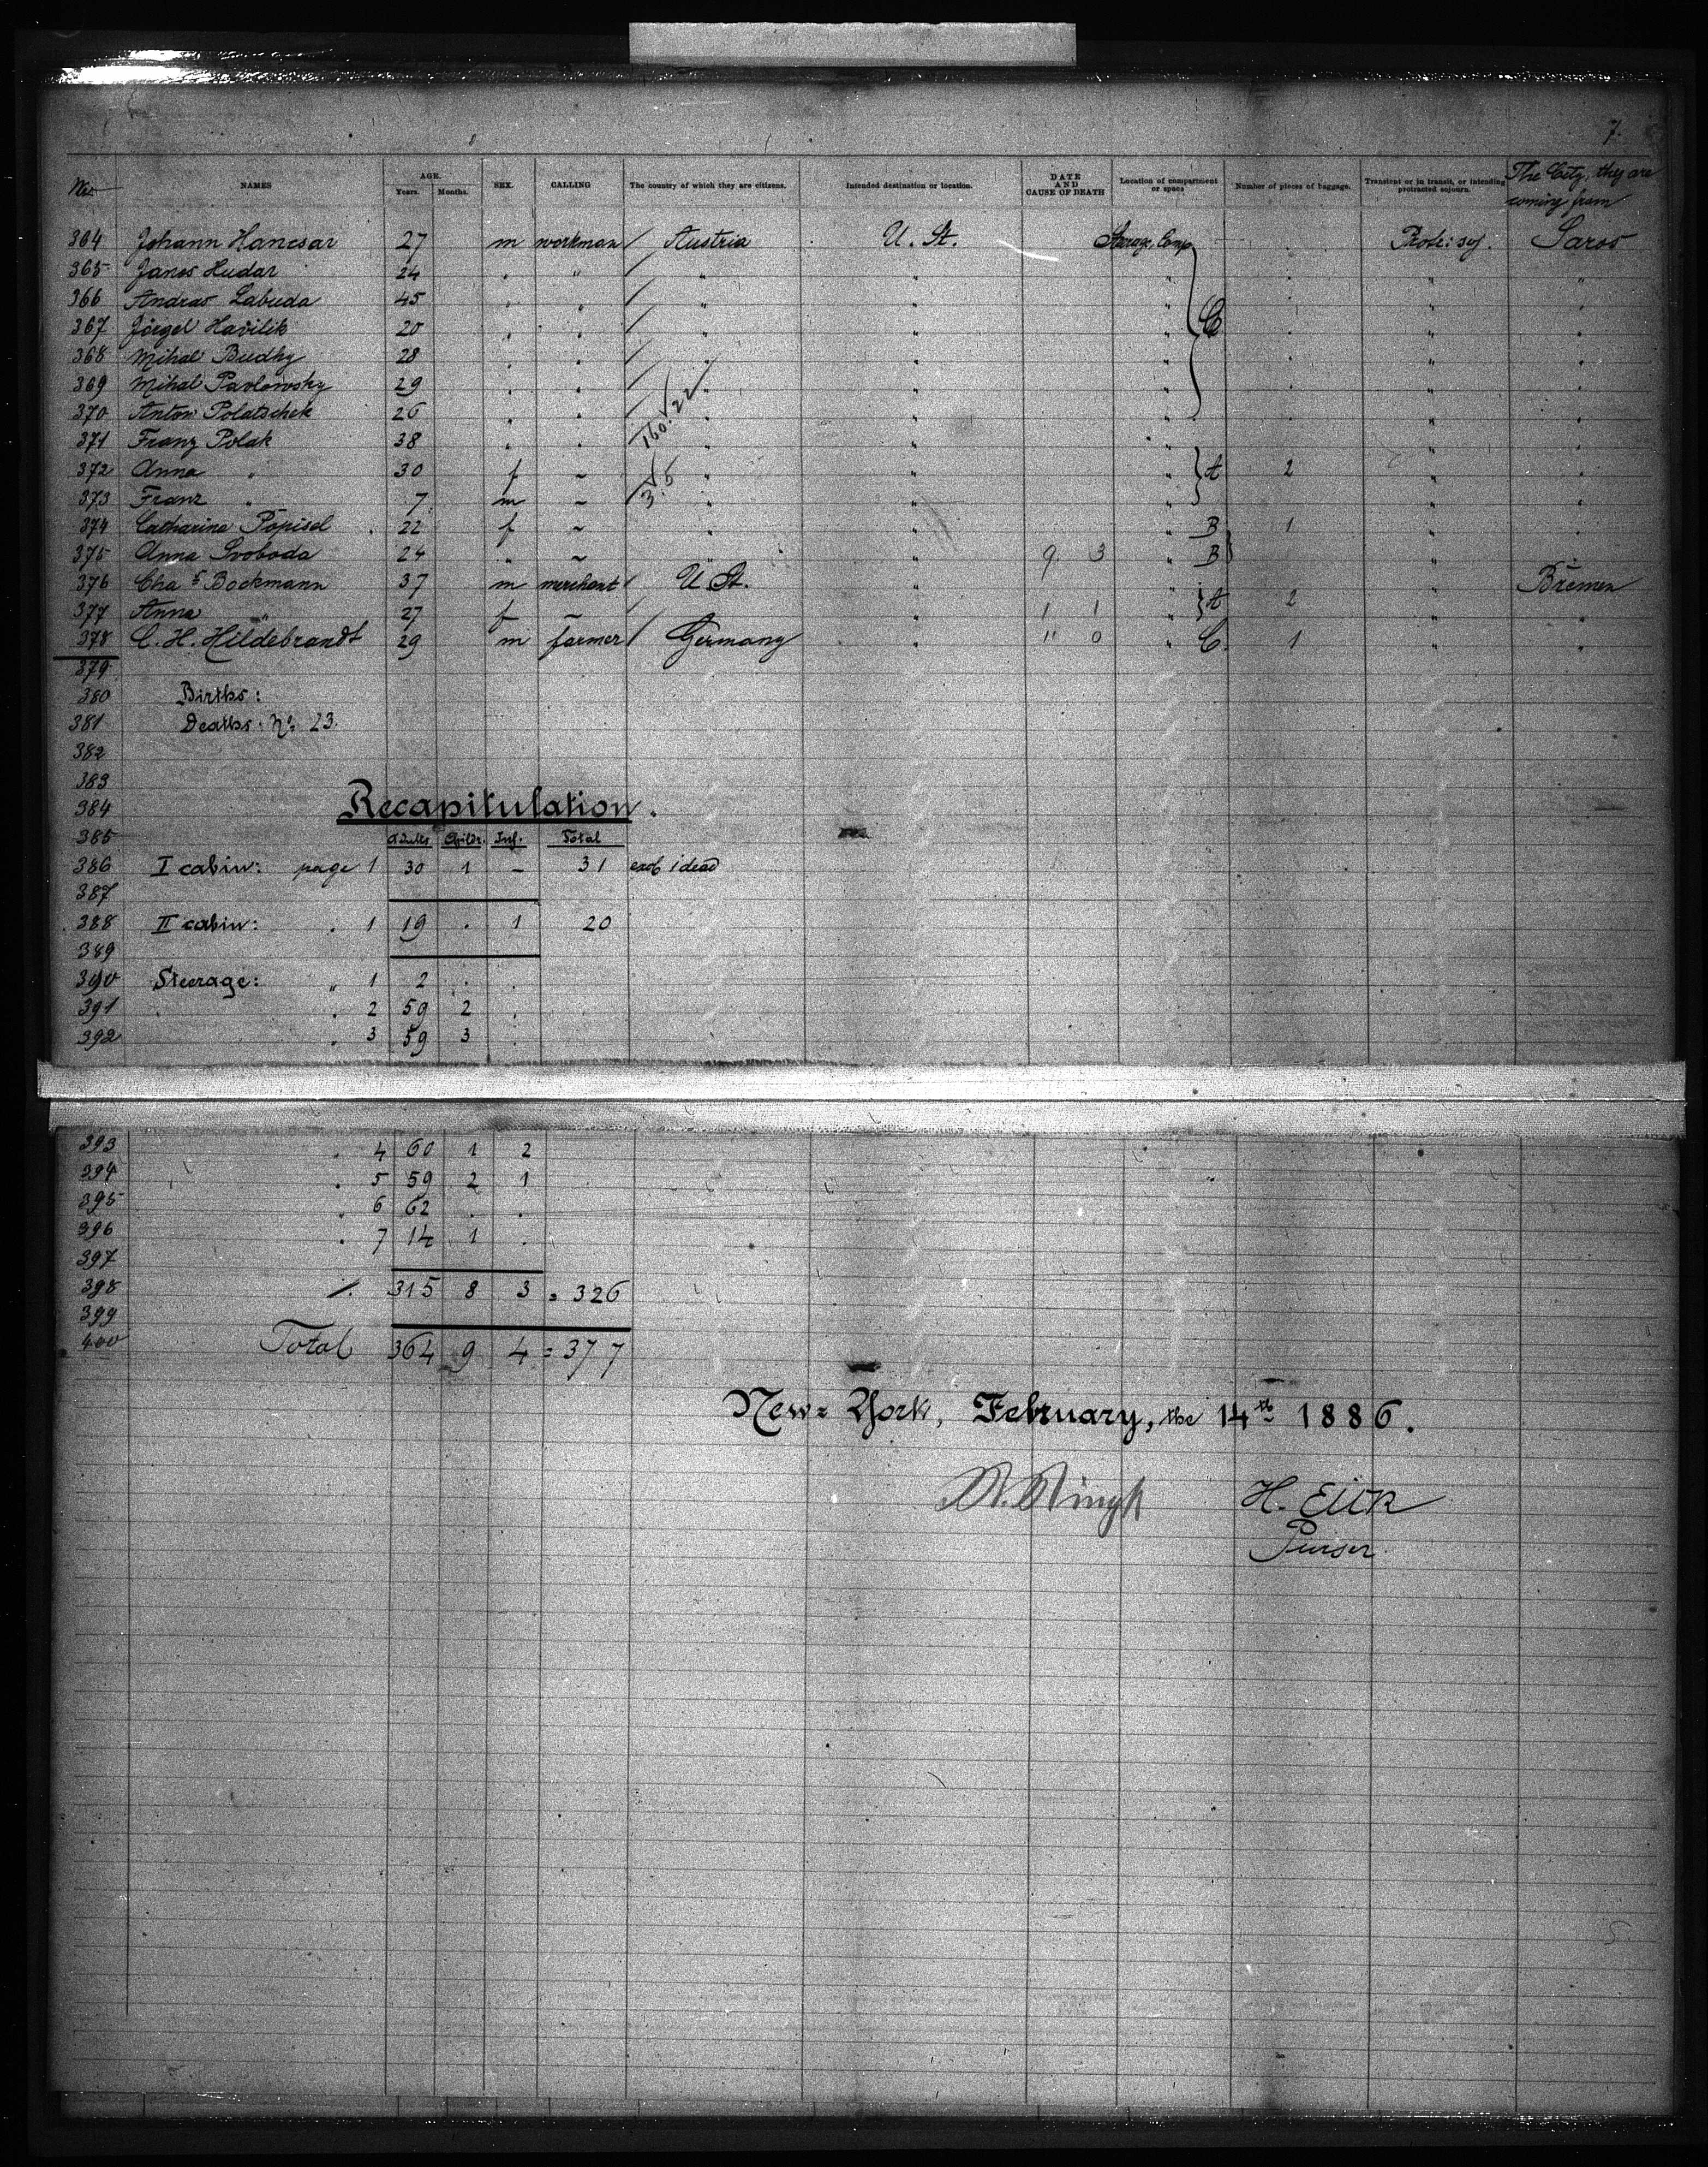 7.
No NAMES AGE. Years. Months. SEX. CALLING The country of which they are citizens. Intended destination or location. DATE AND CAUSE OF DEATH Location of compartment or space Number of pieces of baggage. Transient or in transit, or intending protracted sojourn. The City, they are coming from
364 Johann Hancsar 27 m workman / Austria U. St. Steerage, Comp Protr: soj. Saros
365 Janos Hudar 24 " " / " " " " "
366 Andras Labuda 45 " " / " " " " "
367 Jörgel Havilik 20 " " / " " " C " "
368 Mihal Budhy 28 " " / " " " " "
369 Mihal Pavlowsky 29 " " / " " " " "
370 Anton Polatschek 26 " " / " " " " "
371 Franz Polak 38 " " 160. 22 " " " " "
372 Anna " 30 f ~ " " " A 2 " "
373 Franz " 7 m ~ 3. 5 " " " " "
374 Catharina Popisel 22 f ~ " " " B 1 " "
375 Anna Svoboda 24 " ~ " " 9 3 " B " "
376 Chas Bockmann 37 m merchant / U St. " " " Bremen
377 Anna " 27 f ~ / " " 1 1 " A 2 " "
378 C. H. Hildebrandt 29 m farmer / Germany " " 0 " C. 1 " "
379
380 Births:
381 Deaths: No 23.
382
383
384 Recapitulation.
385 Adults Childr. Inf. Total
386 I cabin: page 1 30 1 – 31 1 dead
387
388 II cabin: " 1 19 . 1 20
389
390 Steerage: " 1 2 . .
391 " 2 59 2 .
392 " 3 59 3 .
393 " 4 60 1 2
394 " 5 59 2 1
395 " 6 62 . .
396 " 7 14 1 .
397
398 /. 315 8 3 = 326
399
400 Total 364 9 4 = 377
New-York, February, the 14th 1886.
H. Eilk
Purser.